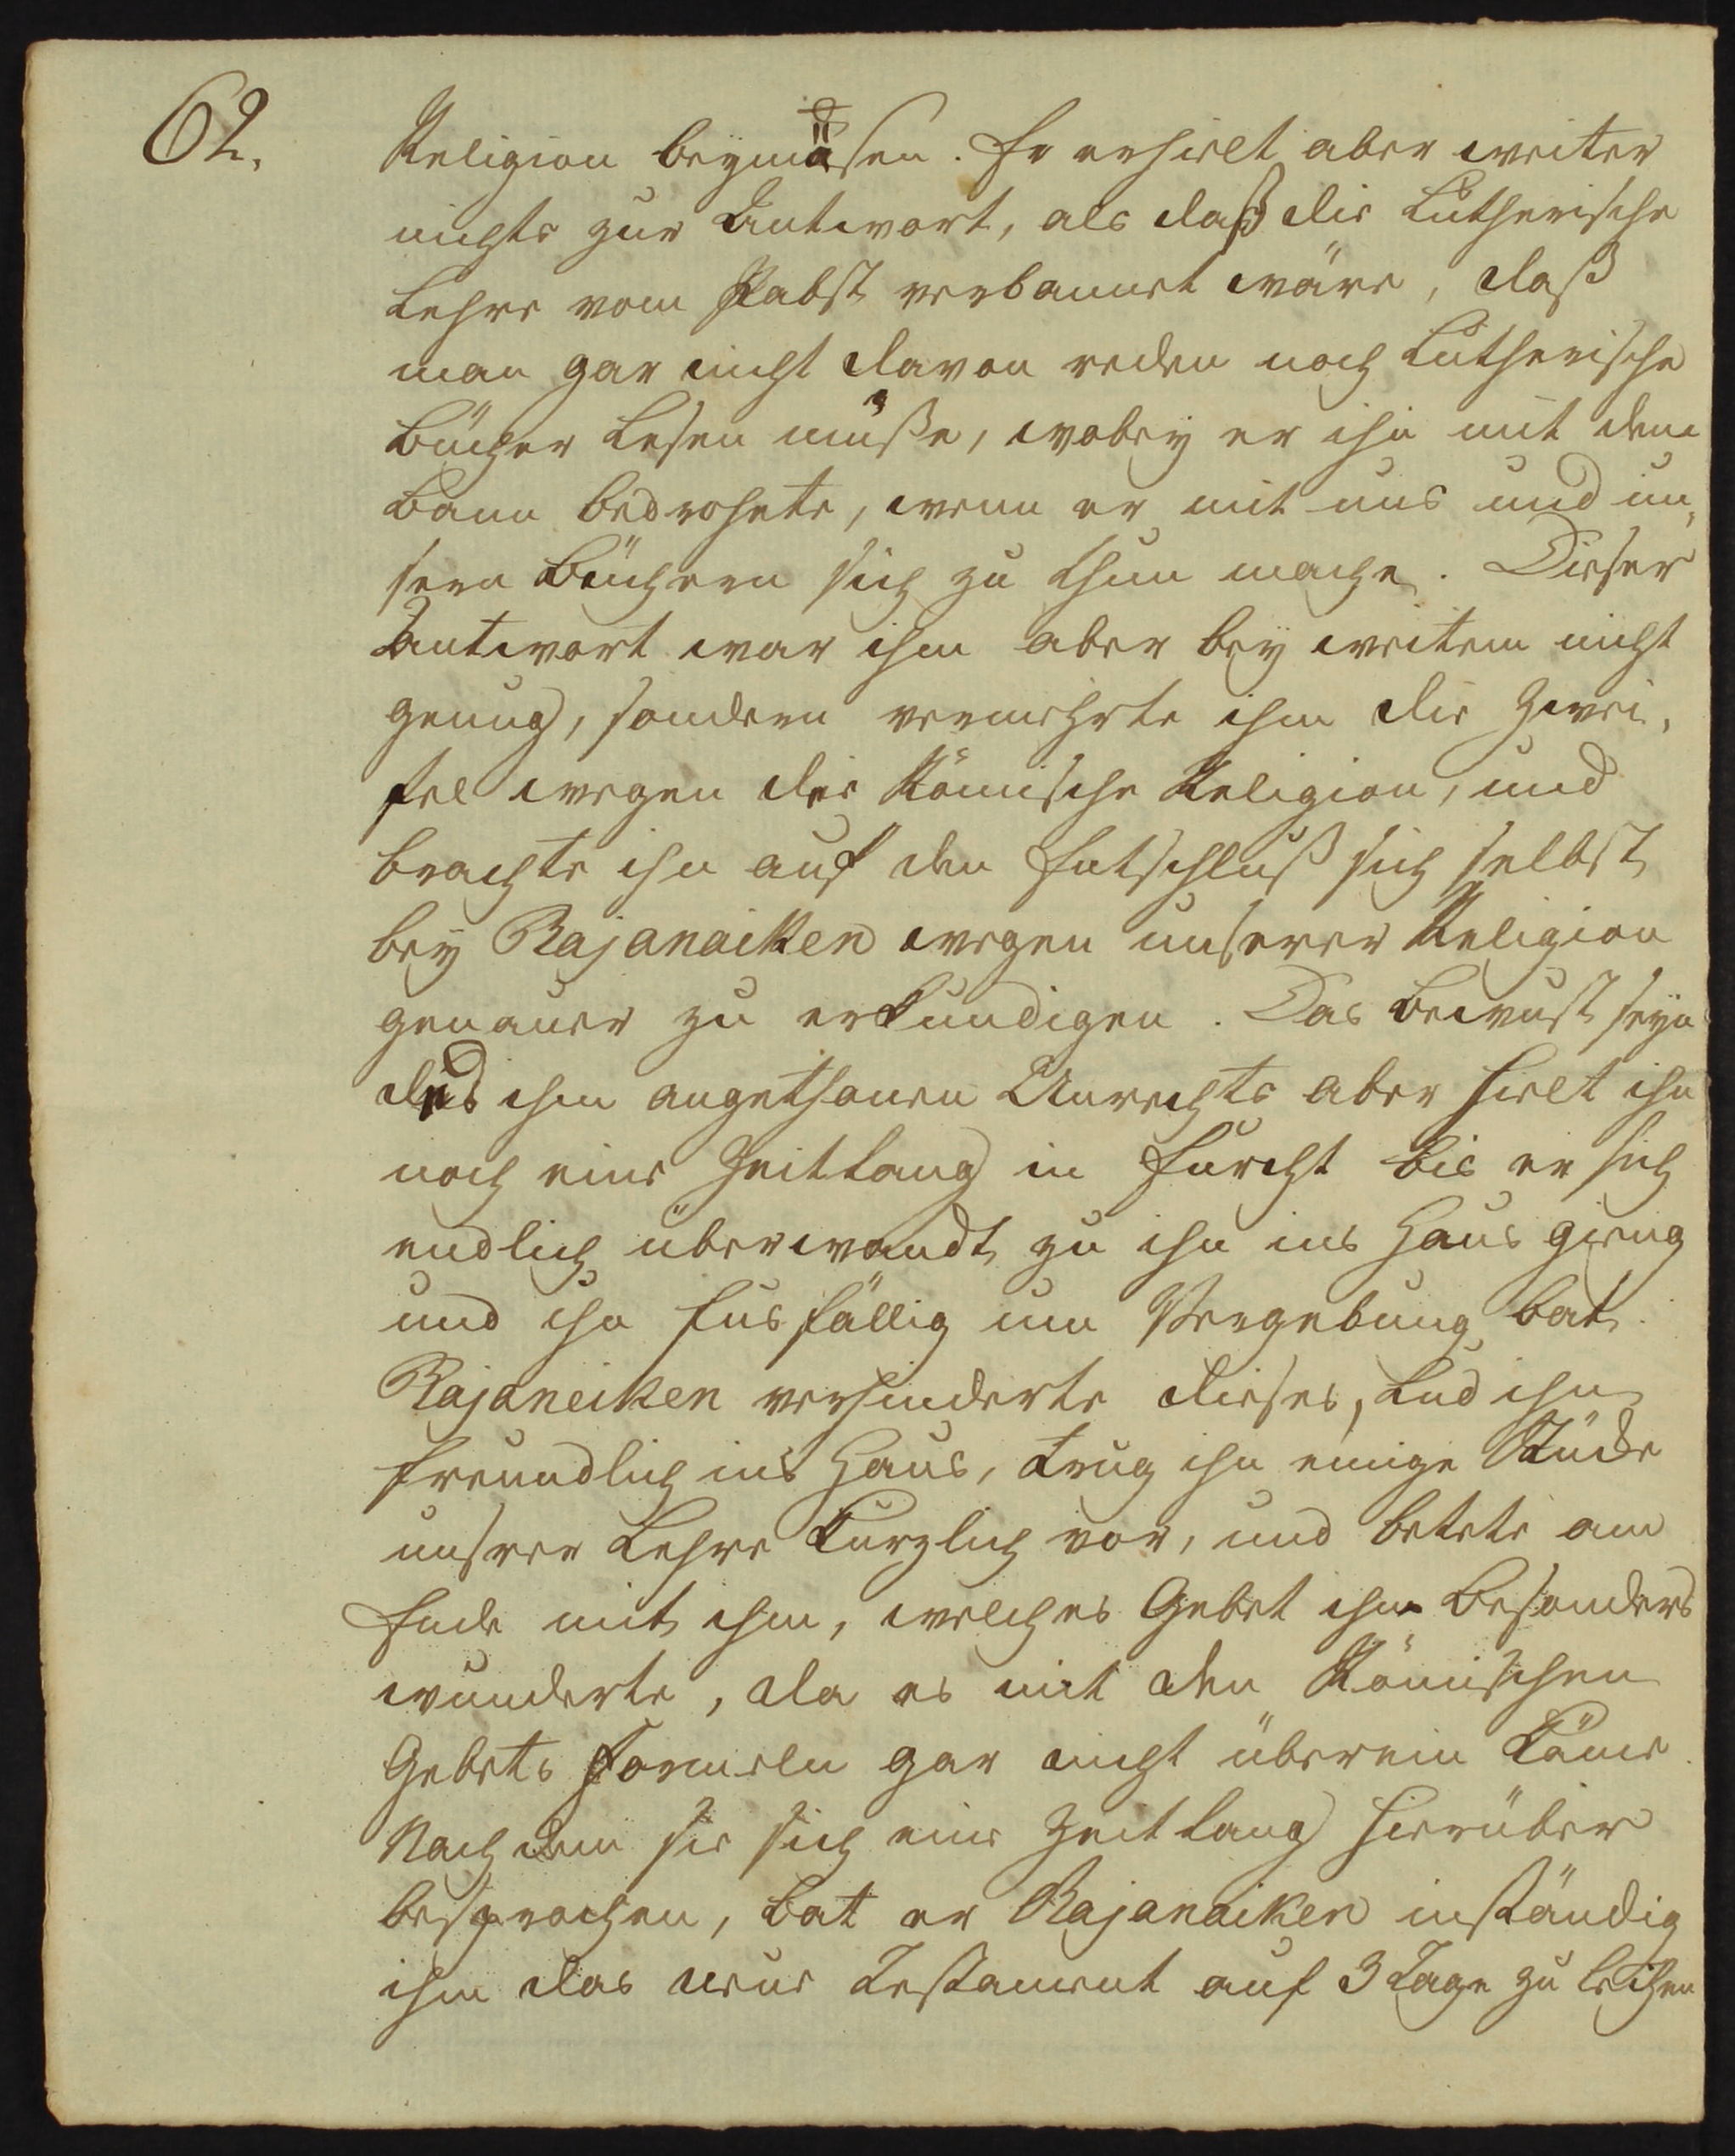 62.
Religion beymäsen. Er erhielt aber weiter
nichts zur Antwort, als daß die Lutherische
Lehre vom Pabst verbannet wäre, daß
man gar nicht davon reden noch Lutherische
Bücher lesen müße, wobey er ihn mit dem
Bann bedrohete, wenn er mit uns und un,
sern Büchern sich zu thun mache. Dieser
Antwort war ihm aber bey weitem nicht
genug, sondern vermehrte ihm die Zwei,
fel wegen der Römische Religion, und
brachte ihn auf den Entschluß sich selbst
bey Rajanaiken wegen unserer Religion
genauer zu erkundigen. Das Bewust seyn
des ihm angethanen Unrechts aber hielt ihn
noch eine Zeitlang in Furcht bis er sich
endlich überwandt zu ihn ins Haus gieng
und ihn fusfällig um Vergebung bat.
Rajaneiken verhinderte dieses, lud ihn
freundlich ins Haus, trug ihn einige Stücke
unsrer Lehre kurzlich vor, und betete am
Ende mit ihm, welches Gebet ihn besonders
wunderte, da es mit den Römischen
Gebets Formeln gar nicht überein käme.
Nach dem sie sich eine Zeitlang hierüber
besprochen, bat er Rajanaiken inständig
ihm das neue Testament auf 3 Tage zu leihen